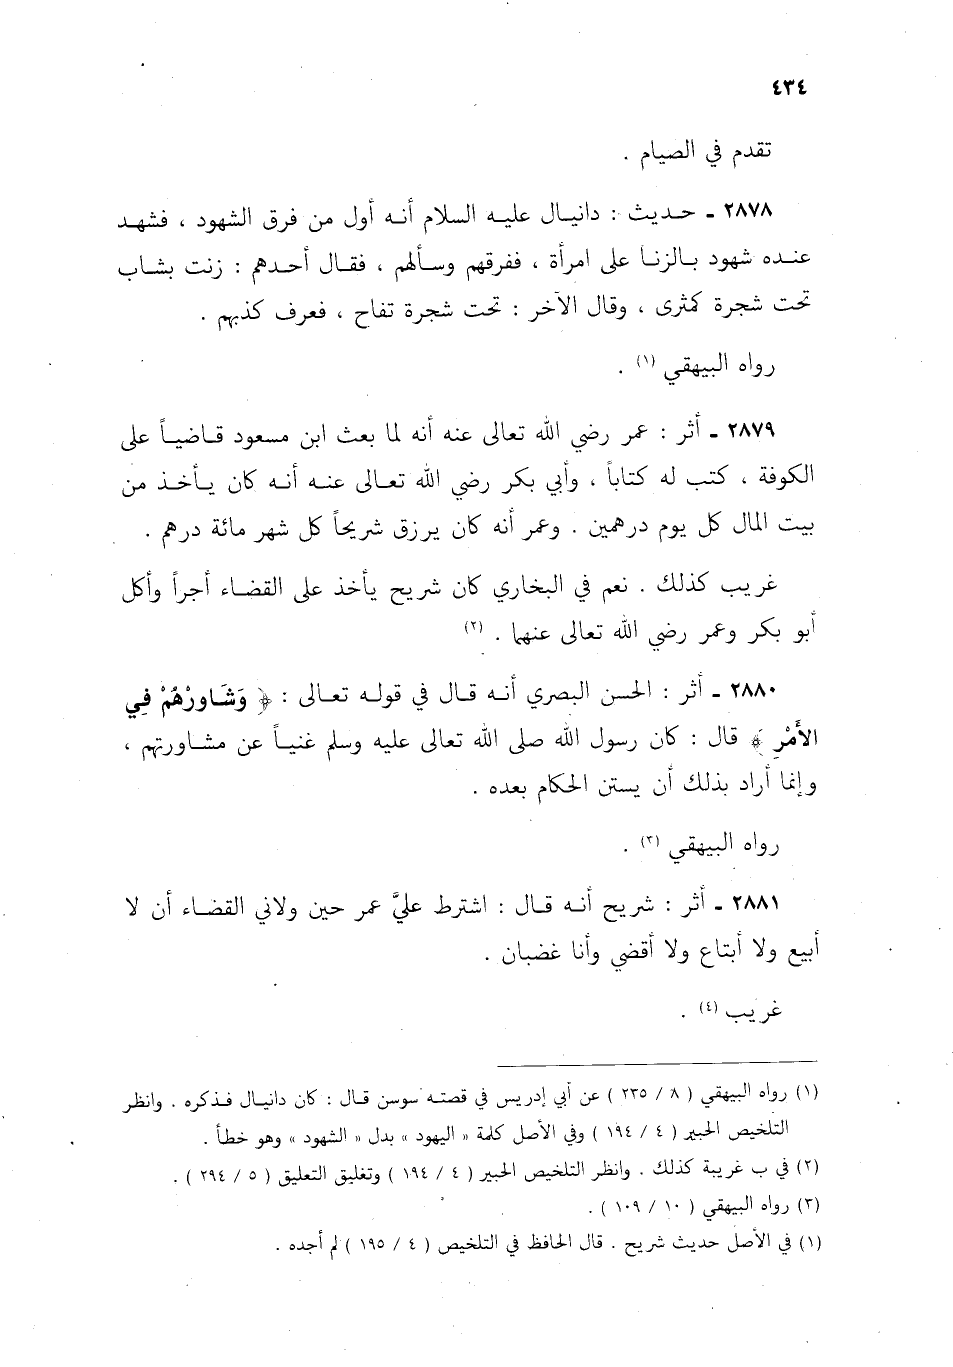 ٤٣٤
تقدم في الصيام .
٢٨٧٨ ـ حـديث : دانيـال عليـه السـلام أنـه أول من فرق الشهود ، فشهـد
عنـده شهود بـالزنـا على امرأة ، ففرقهم وسـألهم ، فقـال أحـدهم : زنت بشـاب
تحت شجرة كمثرى ، وقال الآخر : تحت شجرة تفاح ، فعرف كذبهم .
رواه البيهقي (١) .
٢٨٧٩ ـ أثر : عمر رضي الله تعالى عنه أنه لما بعث ابن مسعود قـاضيـاً على
الكوفة ، كتب له كتاباً ، وأبي بكر رضي الله تعـالى عنـه أنـه كان يـأخـذ من
بيت المال كل يوم درهمين . وعمر أنه كان يرزق شريحاً كل شهر مائة درهم .
غريب كذلك . نعم في البخاري كان شريح يأخذ على القضـاء أجراً وأكل
أبو بكر وعمر رضي الله تعالى عنهما . (٢)
٢٨٨٠ ـ أثر : الحسن البصري أنـه قـال في قولـه تعـالى : ﴿ وَشَـاورْهُمْ فِي
الأَمْرِ ﴾ قال : كان رسول الله صلى الله تعالى عليه وسلم غنيـاً عن مشـاورتهم ،
وإنما أراد بذلك أن يستن الحكام بعده .
رواه البيهقي (٣) .
٢٨٨١ ـ أثر : شريح أنـه قـال : اشترط عليَّ عمر حين ولاني القضـاء أن لا
أبيع ولا أبتاع ولا أقضي وأنا غضبان .
غريب (٤) .
(١) رواه البيهقي ( ٨ / ٢٣٥ ) عن أبي إدريس في قصتـه سوسن قـال : كان دانيال فـذكره . وانظر
التلخيص الحبير ( ٤ / ١٩٤ ) وفي الأصل كلمة « اليهود » بدل « الشهود » وهو خطأ .
(٢) في ب غريبة كذلك . وانظر التلخيص الحبير ( ٤ / ١٩٤ ) وتغليق التعليق ( ٥ / ٢٩٤ ) .
(٣) رواه البيهقي ( ١٠ / ١٠٩ ) .
(١) في الأصل حديث شريح . قال الحافظ في التلخيص ( ٤ / ١٩٥ ) لم أجده .